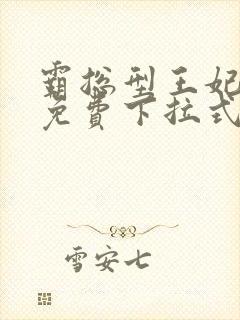 霸总型王妃
免費下拉式
雪安七